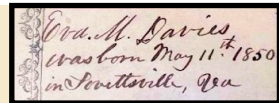 Eva. M. Davies
was born May 11.th 1850
in Lovettsville, Va